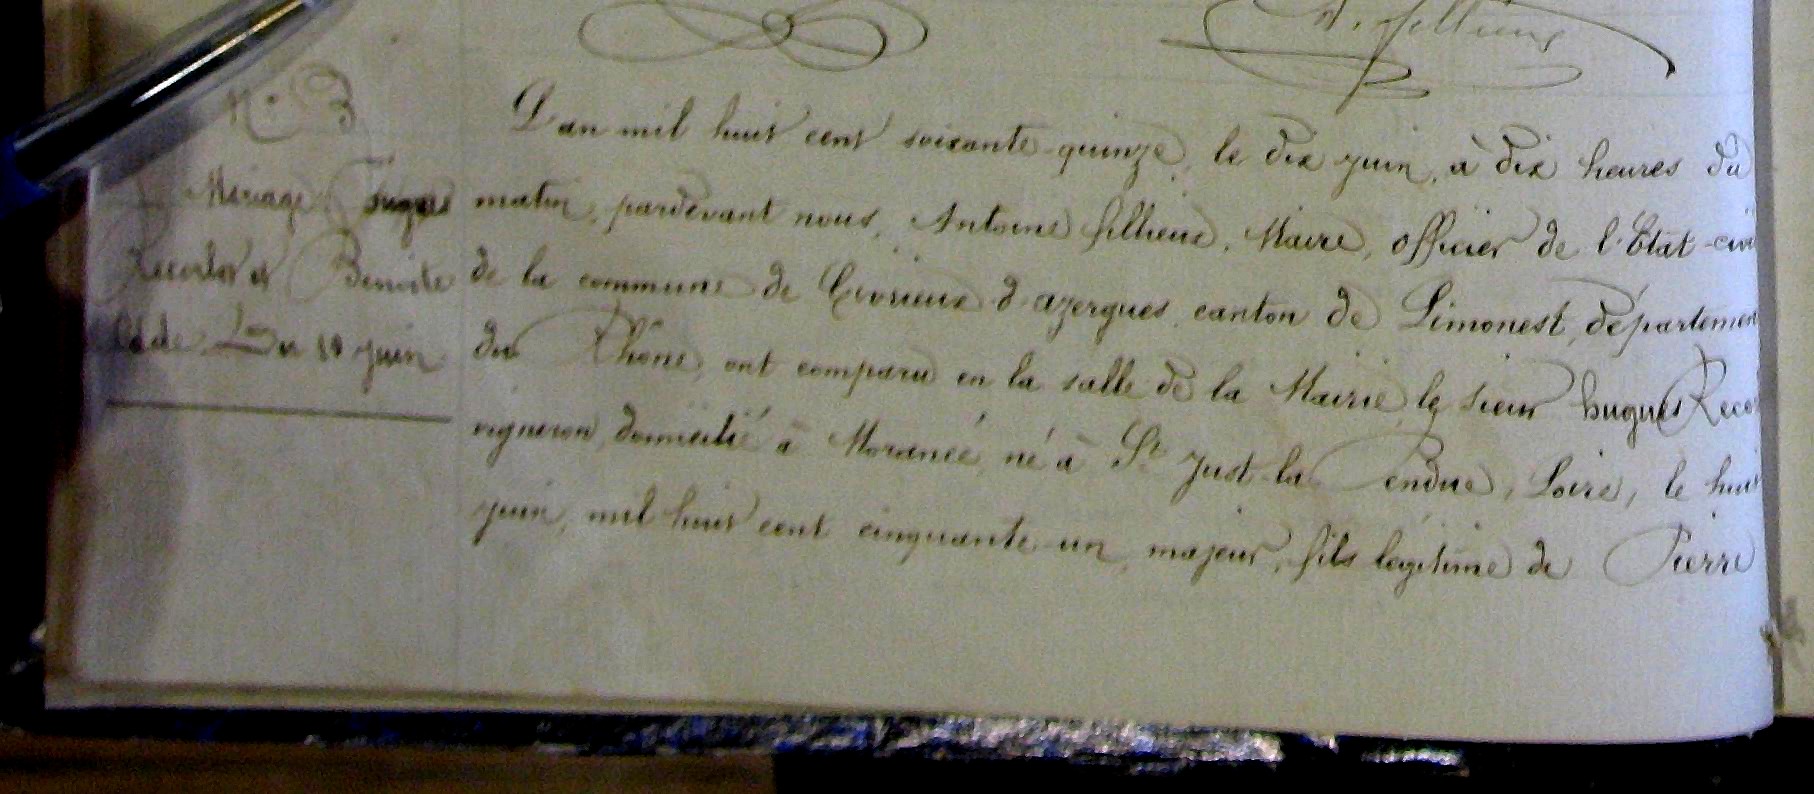 A. fillieux
N.º 3
Mariage Hugues
Recorbet et Benoite
Du 10 juin
L'an mil huit cent soixante-quinze, le dix juin, à dix heures du
matin, pardevant nous, Antoine fillieux, Maire, officier de l'État-civil
de la commune de Civrieux d'azergues, canton de Limonest, département
du Rhône, ont comparu en la salle de la Mairie, le sieur hugues Recor
vigneron, domicilié à Morancé, né à St Just-la Pendue, Loire, le huit
juin, mil huit cent cinquante-un, majeur, fils légitime de Pierre